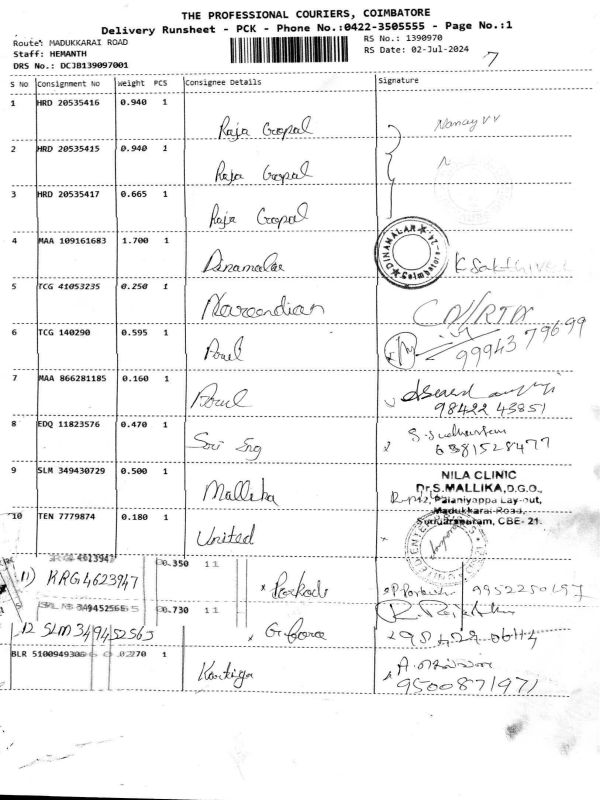 THE PROFESSIONAL COURIERS, COIMBATORE
Delivery Runsheet - PCK - Phone No.:0422-3505555 - Page No.:1
Route: MADUKKARAI ROAD
RS No.: 1390970
Staff: HEMANTH
RS Date: 02-Jul-2024
DRS No.: DCJB139097001
7
S No Consignment No Weight PCS Consignee Details Signature
1 HRD 20535416 0.940 1
Raja Gopal
2 HRD 20535415 0.940 1
Raja Gopal
3 HRD 20535417 0.665 1
Raja Gopal
4 MAA 109161683 1.700 1
Dinamalar
DINAMALAR Coimbatore
K Sakthivel
5 TCG 41053235 0.250 1
6 TCG 140290 0.595 1
99943 79699
7 MAA 866281185 0.160 1
98422 43851
8 EDQ 11823576 0.470 1
Sri Eng
6381528477
9 SLM 349430729 0.500 1
Mallika
NILA CLINIC
Dr.S.MALLIKA,D.G.O.,
Palaniyappa Lay-out,
Madukkarai Road,
Sundarapuram, CBE- 21.
10 TEN 7779874 0.180 1
United
11) KRG 4623947 0.350 1
Porkodi
9952250197
0.730 1
12 SLM 349452565
G force
BLR 5100949306 0.0270 1
Kartiga
9500871971